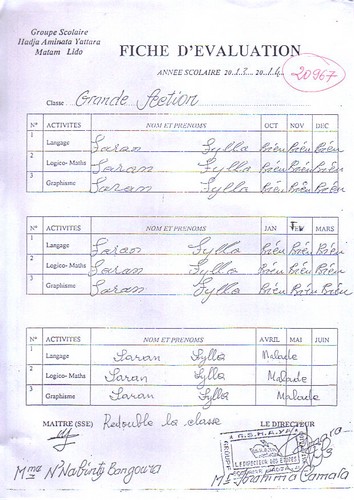 Groupe Scolaire
Hadja Aminata Yattara
Matam Lido
FICHE D'EVALUATION
ANNÉE SCOLAIRE 20.1.3. 20.1.4.
20967
Classe Grande Section
N° ACTIVITES NOM ET PRENOMS OCT NOV DEC
1 Langage Saran Sylla Bien Bien Bien
2 Logico- Maths Saran Sylla Bien Bien Bien
3 Graphisme Saran Sylla Bien Bien Bien
N° ACTIVITES NOM ET PRENOMS JAN FEV MARS
1 Langage Saran Sylla Bien Bien Bien
2 Logico- Maths Saran Sylla Bien Bien Bien
3 Graphisme Saran Sylla Bien Bien Bien
N° ACTIVITES NOM ET PRENOMS AVRIL MAI JUIN
1 Langage Saran Sylla Malade
2 Logico- Maths Saran Sylla Malade
3 Graphisme Saran Sylla Malade
MAITRE (SSE) Redouble la classe LE DIRECTEUR
G.S.H.A.YA
LE DIRECTEUR DES ETUDES
Mme N'Nabinty Bangoura Mr Ibrahima Camara